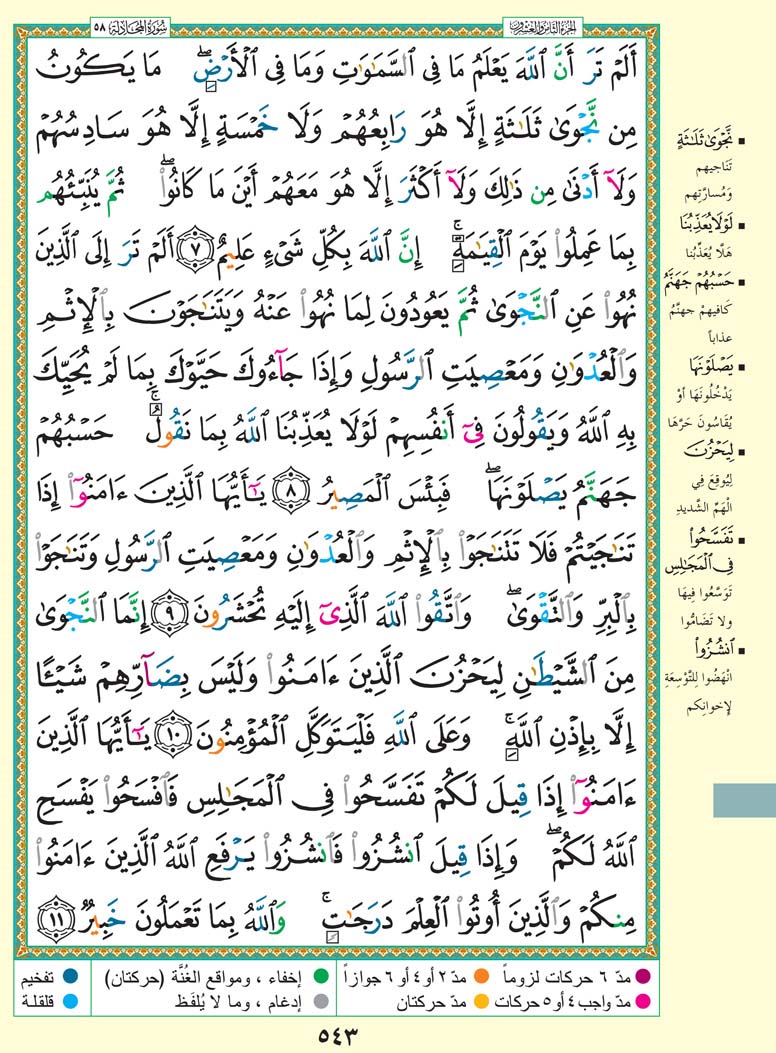 الجزء الثامن والعشرون
سورة المجادلة ٥٨
أَلَمْ تَرَ أَنَّ ٱللَّهَ يَعْلَمُ مَا فِى ٱلسَّمَٰوَٰتِ وَمَا فِى ٱلْأَرْضِۖ مَا يَكُونُ
مِن نَّجْوَىٰ ثَلَٰثَةٍ إِلَّا هُوَ رَابِعُهُمْ وَلَا خَمْسَةٍ إِلَّا هُوَ سَادِسُهُمْ
وَلَآ أَدْنَىٰ مِن ذَٰلِكَ وَلَآ أَكْثَرَ إِلَّا هُوَ مَعَهُمْ أَيْنَ مَا كَانُوا۟ۖ ثُمَّ يُنَبِّئُهُم
بِمَا عَمِلُوا۟ يَوْمَ ٱلْقِيَٰمَةِۚ إِنَّ ٱللَّهَ بِكُلِّ شَىْءٍ عَلِيمٌ ٧ أَلَمْ تَرَ إِلَى ٱلَّذِينَ
نُهُوا۟ عَنِ ٱلنَّجْوَىٰ ثُمَّ يَعُودُونَ لِمَا نُهُوا۟ عَنْهُ وَيَتَنَٰجَوْنَ بِٱلْإِثْمِ
وَٱلْعُدْوَٰنِ وَمَعْصِيَتِ ٱلرَّسُولِ وَإِذَا جَآءُوكَ حَيَّوْكَ بِمَا لَمْ يُحَيِّكَ
بِهِ ٱللَّهُ وَيَقُولُونَ فِىٓ أَنفُسِهِمْ لَوْلَا يُعَذِّبُنَا ٱللَّهُ بِمَا نَقُولُۚ حَسْبُهُمْ
جَهَنَّمُ يَصْلَوْنَهَاۖ فَبِئْسَ ٱلْمَصِيرُ ٨ يَٰٓأَيُّهَا ٱلَّذِينَ ءَامَنُوٓا۟ إِذَا
تَنَٰجَيْتُمْ فَلَا تَتَنَٰجَوْا۟ بِٱلْإِثْمِ وَٱلْعُدْوَٰنِ وَمَعْصِيَتِ ٱلرَّسُولِ وَتَنَٰجَوْا۟
بِٱلْبِرِّ وَٱلتَّقْوَىٰۖ وَٱتَّقُوا۟ ٱللَّهَ ٱلَّذِىٓ إِلَيْهِ تُحْشَرُونَ ٩ إِنَّمَا ٱلنَّجْوَىٰ
مِنَ ٱلشَّيْطَٰنِ لِيَحْزُنَ ٱلَّذِينَ ءَامَنُوا۟ وَلَيْسَ بِضَآرِّهِمْ شَيْـًٔا
إِلَّا بِإِذْنِ ٱللَّهِۚ وَعَلَى ٱللَّهِ فَلْيَتَوَكَّلِ ٱلْمُؤْمِنُونَ ١٠ يَٰٓأَيُّهَا ٱلَّذِينَ
ءَامَنُوٓا۟ إِذَا قِيلَ لَكُمْ تَفَسَّحُوا۟ فِى ٱلْمَجَٰلِسِ فَٱفْسَحُوا۟ يَفْسَحِ
ٱللَّهُ لَكُمْۖ وَإِذَا قِيلَ ٱنشُزُوا۟ فَٱنشُزُوا۟ يَرْفَعِ ٱللَّهُ ٱلَّذِينَ ءَامَنُوا۟
مِنكُمْ وَٱلَّذِينَ أُوتُوا۟ ٱلْعِلْمَ دَرَجَٰتٍۚ وَٱللَّهُ بِمَا تَعْمَلُونَ خَبِيرٌ ١١
▪ نَّجْوَىٰ ثَلَٰثَةٍ
تَنَاجيهم
وَمُسارّتِهم
▪ لَوْلَا يُعَذِّبُنَا
هَلّا يُعَذِّبُنا
▪ حَسْبُهُمْ جَهَنَّمُ
كافيهِمْ جهنَّمُ
عذاباً
▪ يَصْلَوْنَهَا
يَدْخُلُونَهَا أوْ
يُقَاسُونَ حَرَّهَا
▪ لِيَحْزُنَ
لِيُوقِعَ فِي
الْهَمِّ الشَّديدِ
▪ تَفَسَّحُوا۟
فِى ٱلْمَجَٰلِسِ
تَوَسَّعُوا فِيهَا
ولا تَضَامُّوا
▪ ٱنشُزُوا۟
انْهَضُوا لِلتَّوْسِعَةِ
لإخوانِكم
مدّ ٦ حركات لزوماً
مدّ ٢ أو ٤ أو ٦ جوازاً
إخفاء ، ومواقع الغُنَّة (حركتان)
تفخيم
مدّ واجب ٤ أو ٥ حركات
مدّ حركتان
إدغام ، وما لا يُلفَظ
قلقلة
٥٤٣